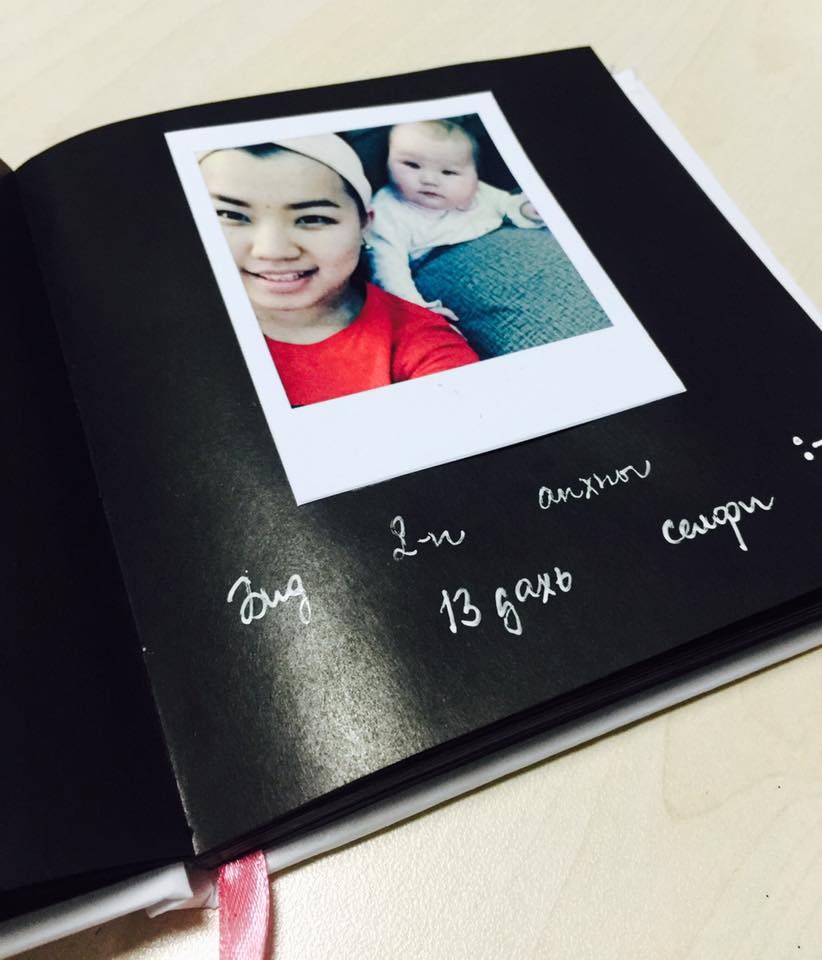 Бид 2-н анхны
13 дахь селфи :-